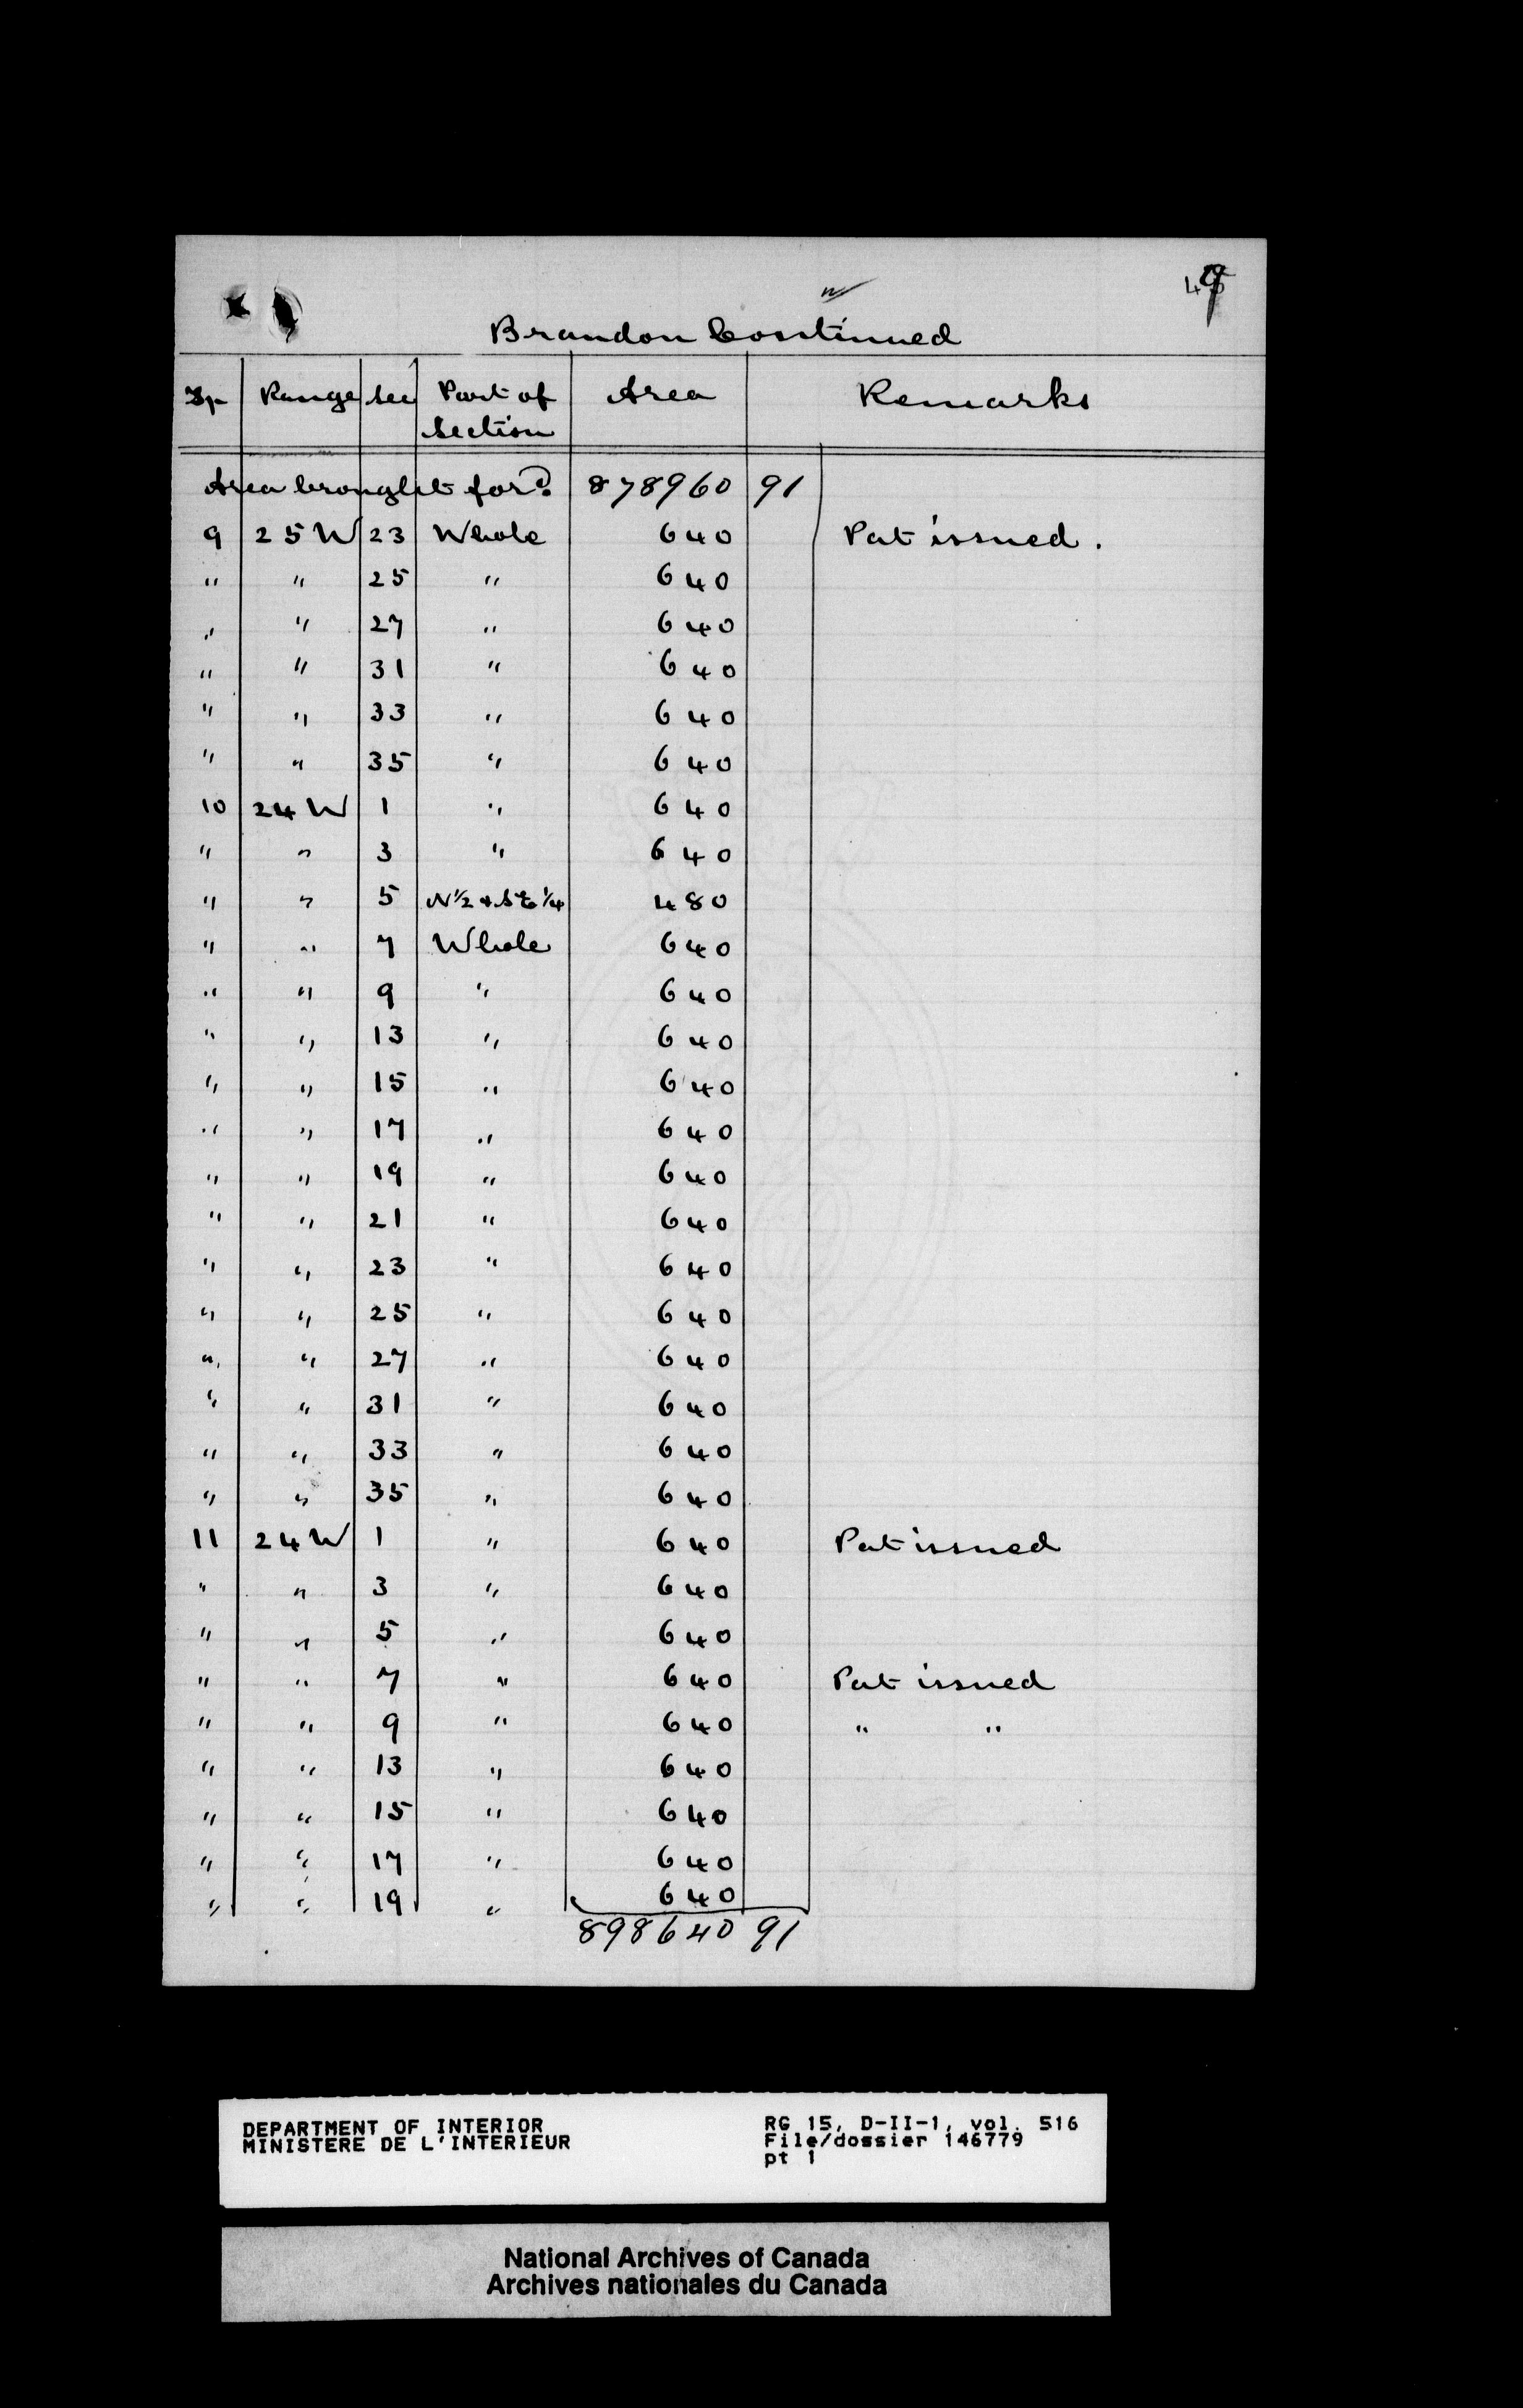 9
Brandon Continued
Tp Range Sec Part of Section Area Remarks
Area brought for.d 878960 91
9 25 W 23 Whole 640 Pat issued.
" " 25 " 640
" " 27 " 640
" " 31 " 640
" " 33 " 640
" " 35 " 640
10 24 W 1 " 640
" " 3 " 640
" " 5 N 1/2 & SE 1/4 480
" " 7 Whole 640
" " 9 " 640
" " 13 " 640
" " 15 " 640
" " 17 " 640
" " 19 " 640
" " 21 " 640
" " 23 " 640
" " 25 " 640
" " 27 " 640
" " 31 " 640
" " 33 " 640
" " 35 " 640
11 24 W 1 " 640 Pat issued
" " 3 " 640
" " 5 " 640
" " 7 " 640 Pat issued
" " 9 " 640 " "
" " 13 " 640
" " 15 " 640
" " 17 " 640
" " 19 " 640
898640 91
DEPARTMENT OF INTERIOR
MINISTERE DE L'INTERIEUR
RG 15, D-II-1, vol. 516
File/dossier 146779
pt 1
National Archives of Canada
Archives nationales du Canada